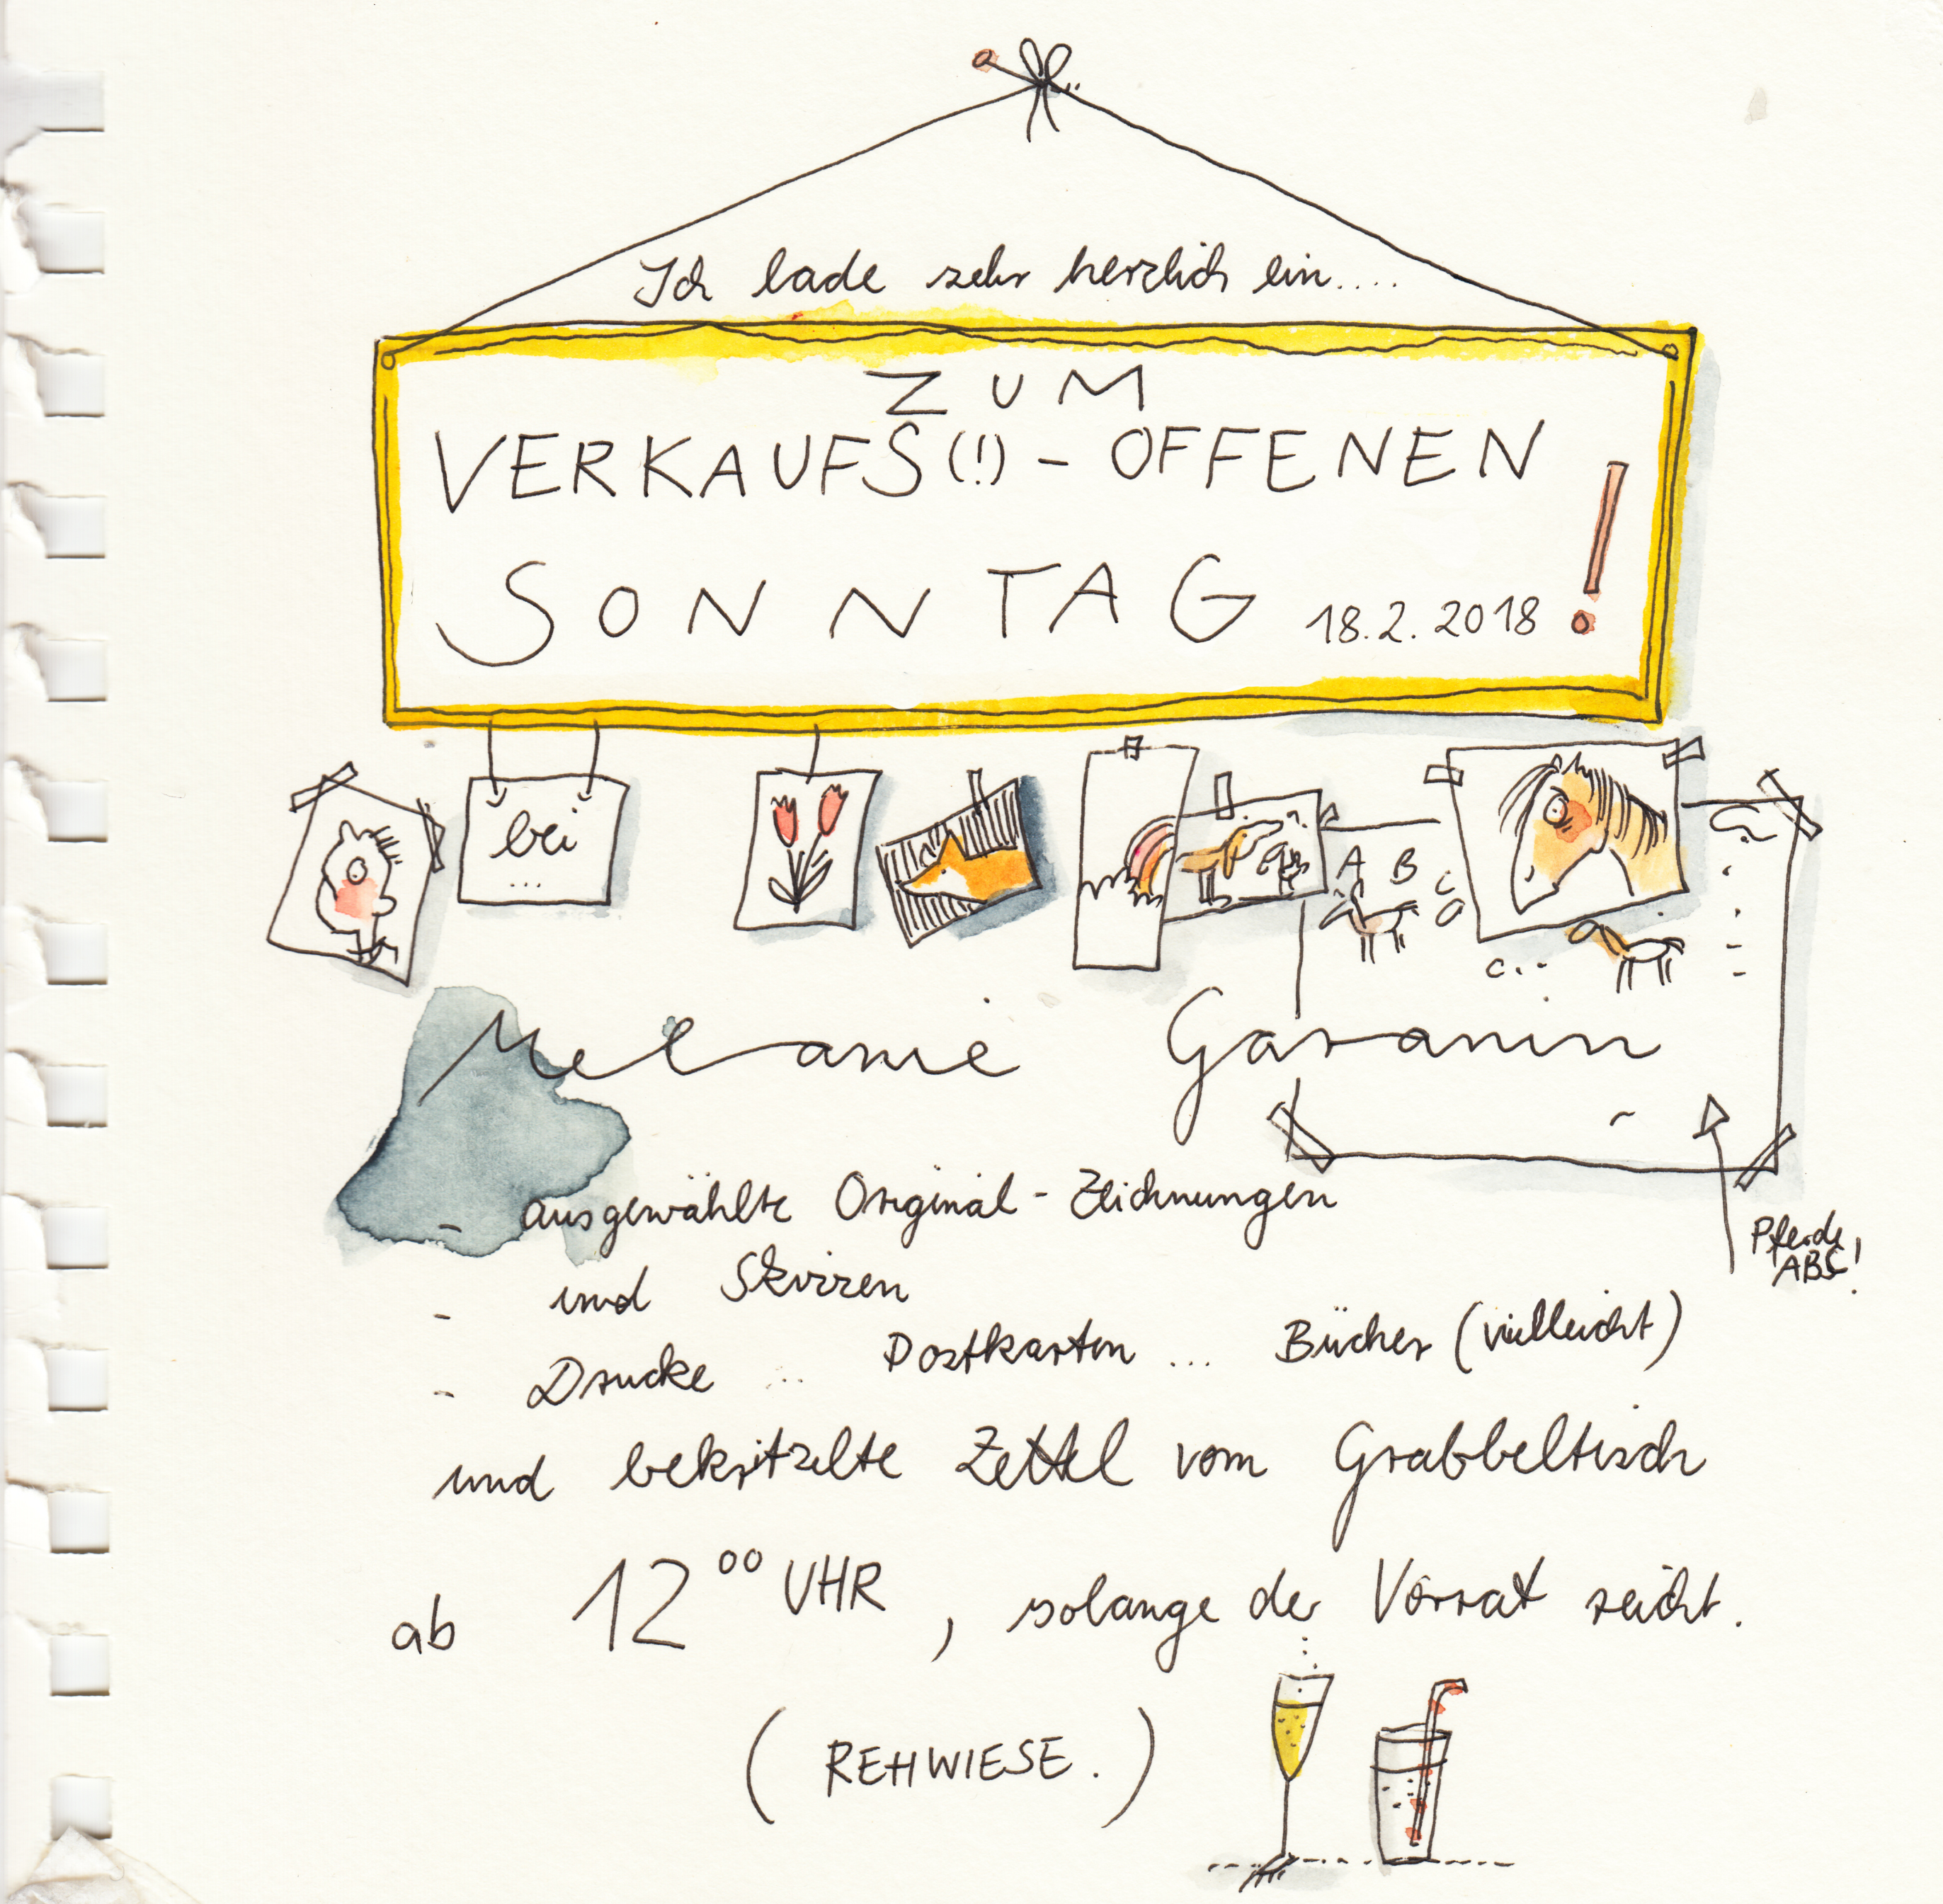 Ich lade sehr herzlich ein....
ZUM
VERKAUFS(!)-OFFENEN
SONNTAG 18.2.2018 !
bei
...
A B C
C...
Melanie Garanin
- ausgewählte Original-Zeichnungen
- und Skizzen
- Drucke ... Postkarten ... Bücher (vielleicht)
und bekritzelte Zettel vom Grabbeltisch
Pferde
ABC!
ab 12⁰⁰ UHR, solange der Vorrat reicht.
(REHWIESE.)